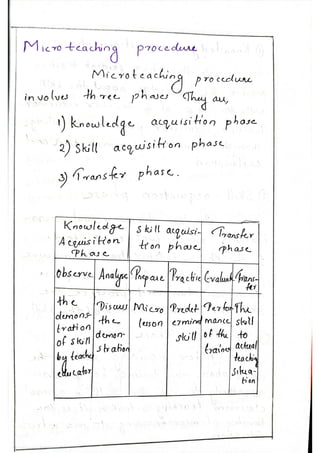 Microteaching procedure
Microteaching procedure
involves three phases They are,
1) Knowledge acquisition phase
2) Skill acquisition phase
3) Transfer phase.
Knowledge Acquisition Phase
Skill acquisi-tion phase
Transfer phase
Observe Analyse Prepare Practice Evaluate Trans-fer
the demons-tration of skill by teacher educator
Discuss the demon-stration
Micro lesson
Predet ermined skill
Perfor mance of the trainee
The skill to actual teaching situa-tion